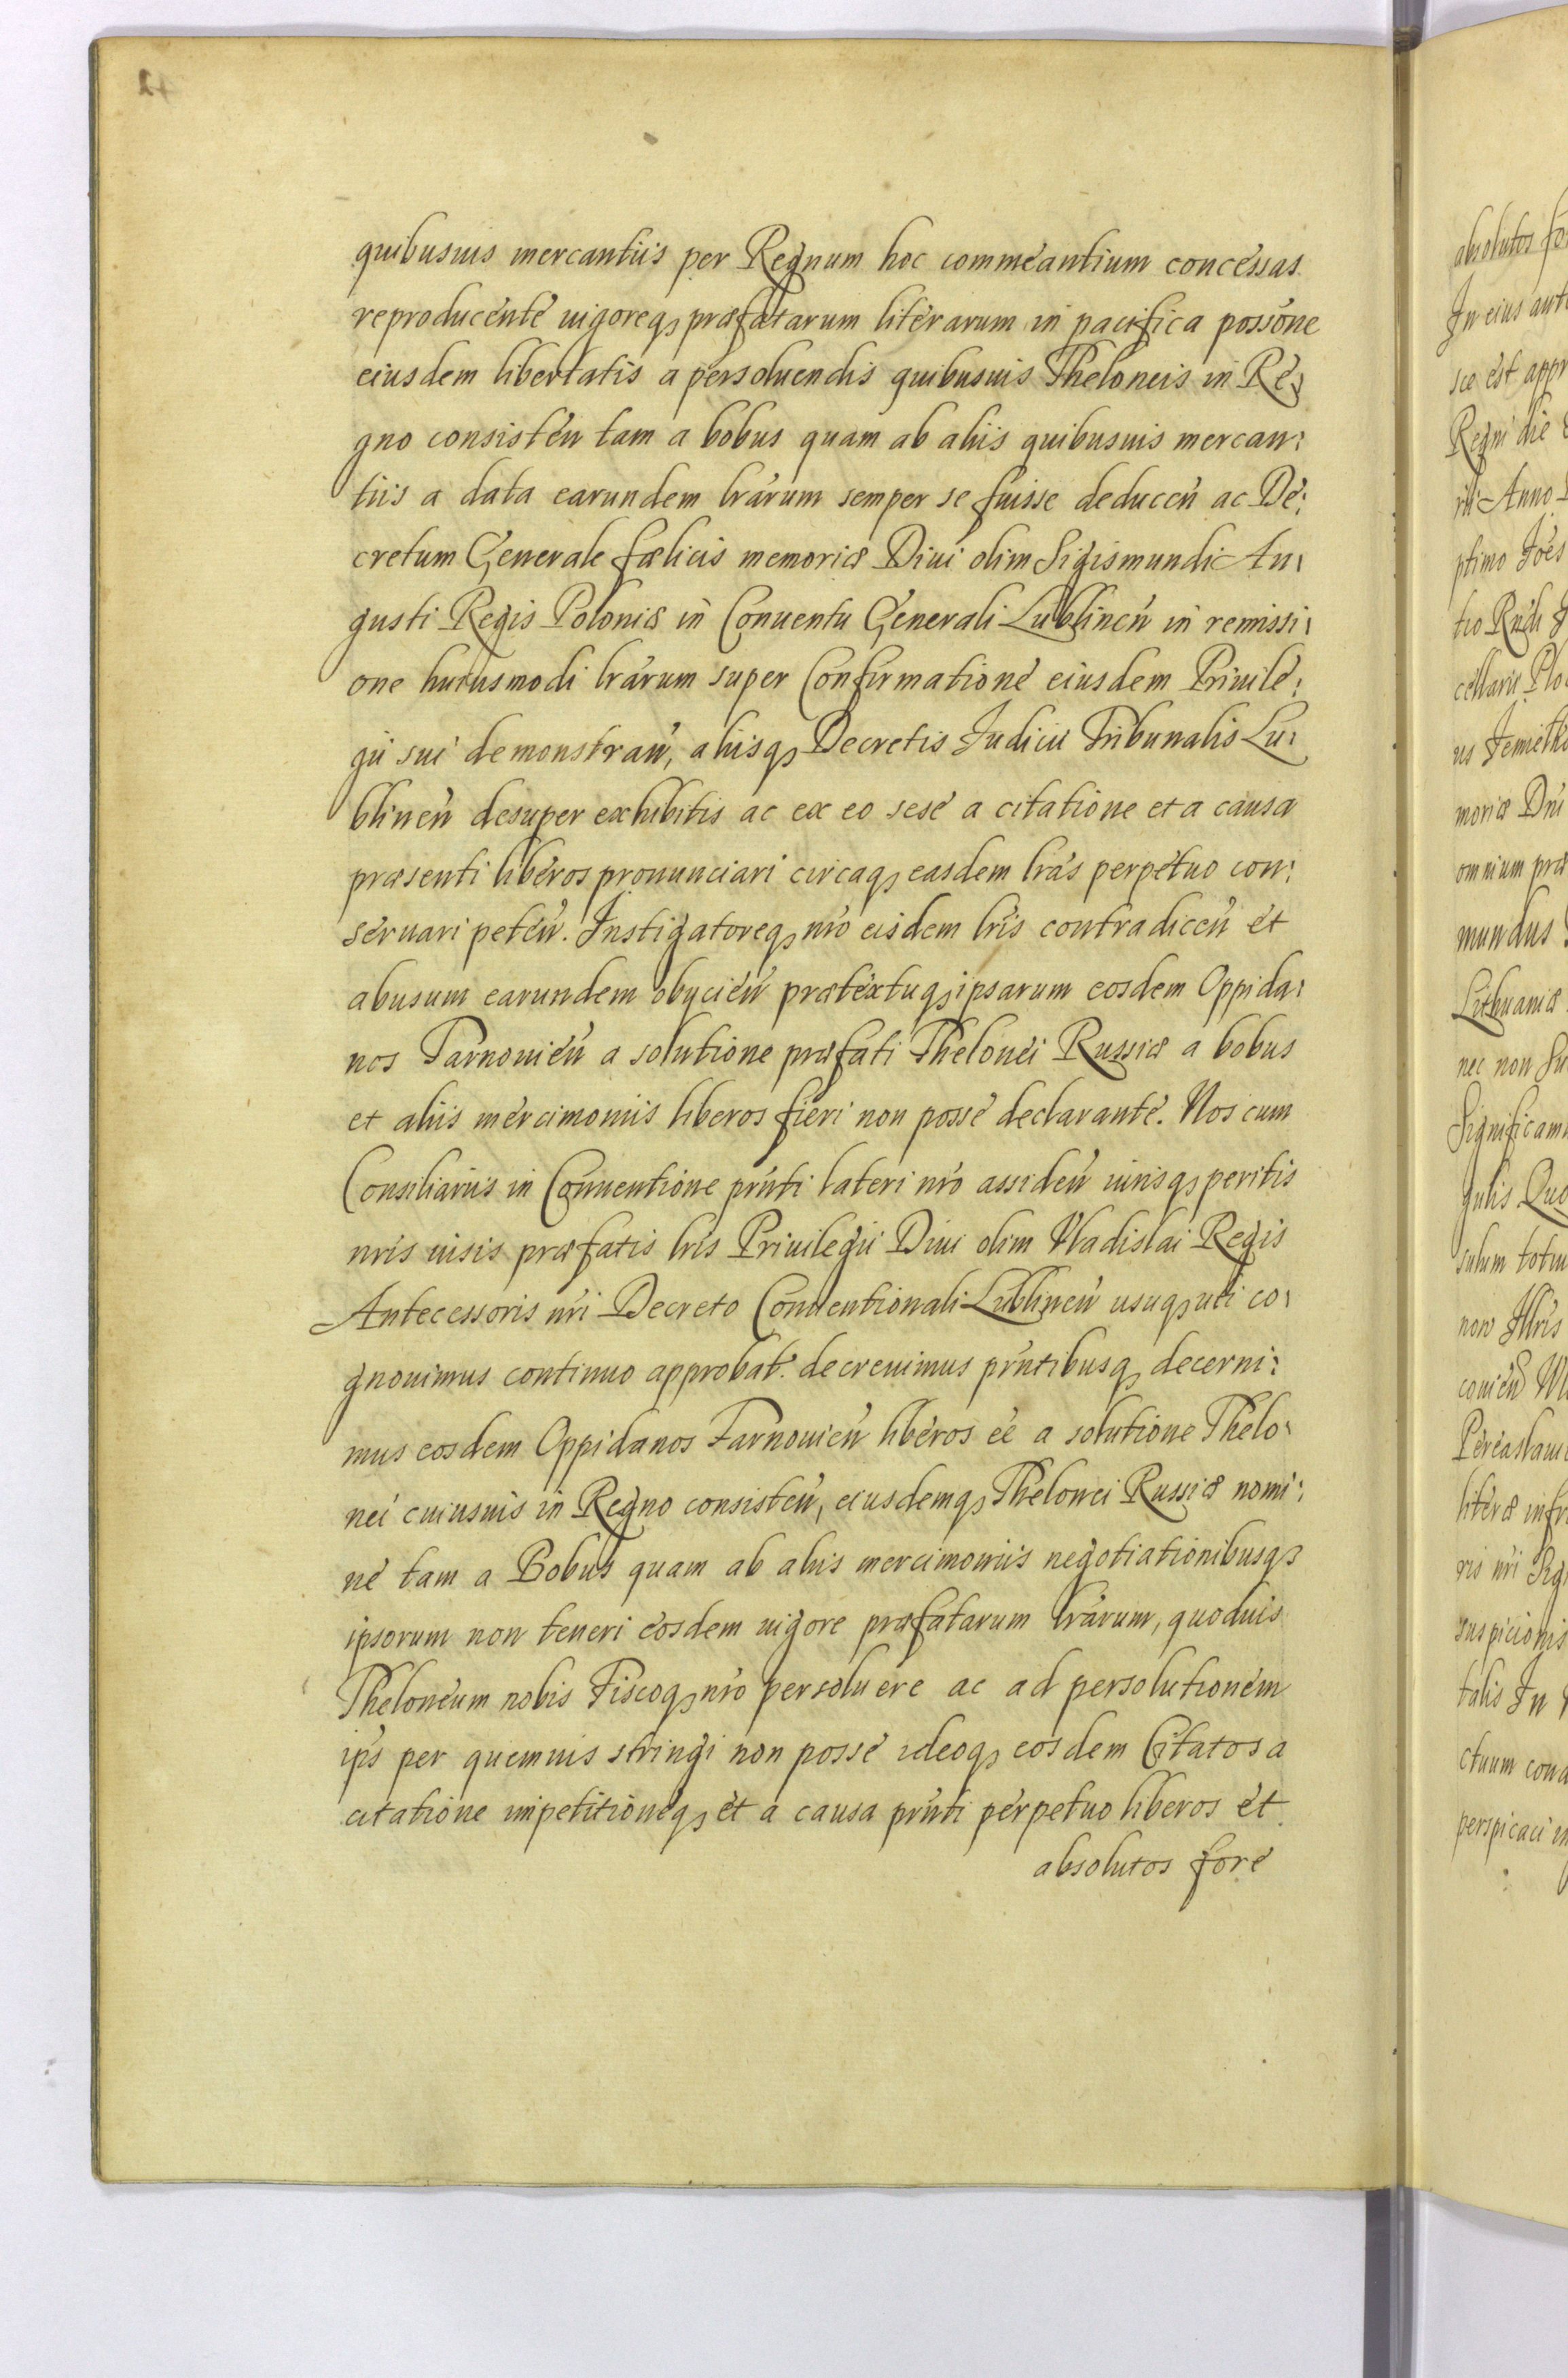 quibusuis mercantiis per Regnum hoc commeantium concessas
reproducente uigoreq₃ præfatarum literarum in pacifica possone
eiusdem libertatis a persoluendis quibusuis Theloneis in Re:
gno consisteń tam a bobus quam ab aliis quibusuis mercan:
tiis a data earundem lrarum semper se fuisse deduceń ac De:
cretum Generale fælicis memoriæ Diui olim Sigismundi Au:
gusti Regis Poloniæ in Conuentu Generali Lublineń in remissi:
one huiusmodi lrarum super Confirmatione eiusdem Priuile:
gii sui demonstrań, aliisq₃ Decretis Judicii Tribunalis Lu:
blineń desuper exhibitis ac ex eo sese a citatione et a causa
præsenti liberos pronunciari circaq₃ easdem lras perpetuo con:
seruari peteń. Instigatoreq₃ nro eisdem lris contradiceń et
abusum earundem obycień prætextuq₃ ipsarum eosdem Oppida:
nos Tarnouień a solutione præfati Thelonei Russiæ a bobus
et aliis mercimoniis liberos fieri non posse declarante. Nos cum
Consiliariis in Conuentione prnti lateri nro assideń iurisq₃ peritis
nris uisis præfatis lris Priuilegii Diui olim Wladislai Regis
Antecessoris nri Decreto Conuentionali Lublineń usuq₃ uti co:
gnouimus continuo approbat. decreuimus prntibusq₃ decerni:
mus eosdem Oppidanos Tarnouień liberos ee a solutione Thelo:
nei cuiusuis in Regno consisteń, eiusdemq₃ Thelonei Russiæ nomi:
ne tam a Bobus quam ab aliis mercimoniis negotiationibusq₃
ipsorum non teneri eosdem uigore præfatarum lrarum, quoduis
Theloneum nobis Fiscoq₃ nro persoluere ac ad persolutionem
ips per quemuis stringi non posse ideoq₃ eosdem Citatos a
citatione impetitioneq₃ et a causa prnti perpetuo liberos et
absolutos fore